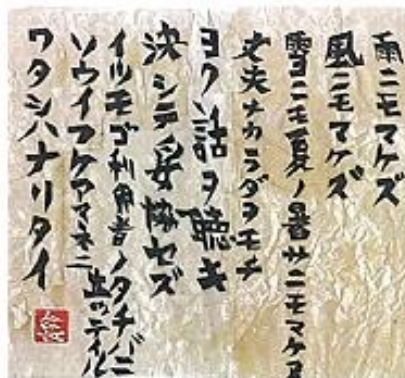 雨ニモマケズ
風ニモマケズ
雪ニモ夏ノ暑サニモマケズ
丈夫ナカラダヲモチ
ヨク話ヲ聴キ
決シテ妥協セズ
イツモゴ利用者ノタチバニ立ッテイル
ソウイフケアマネニ
ワタシハナリタイ